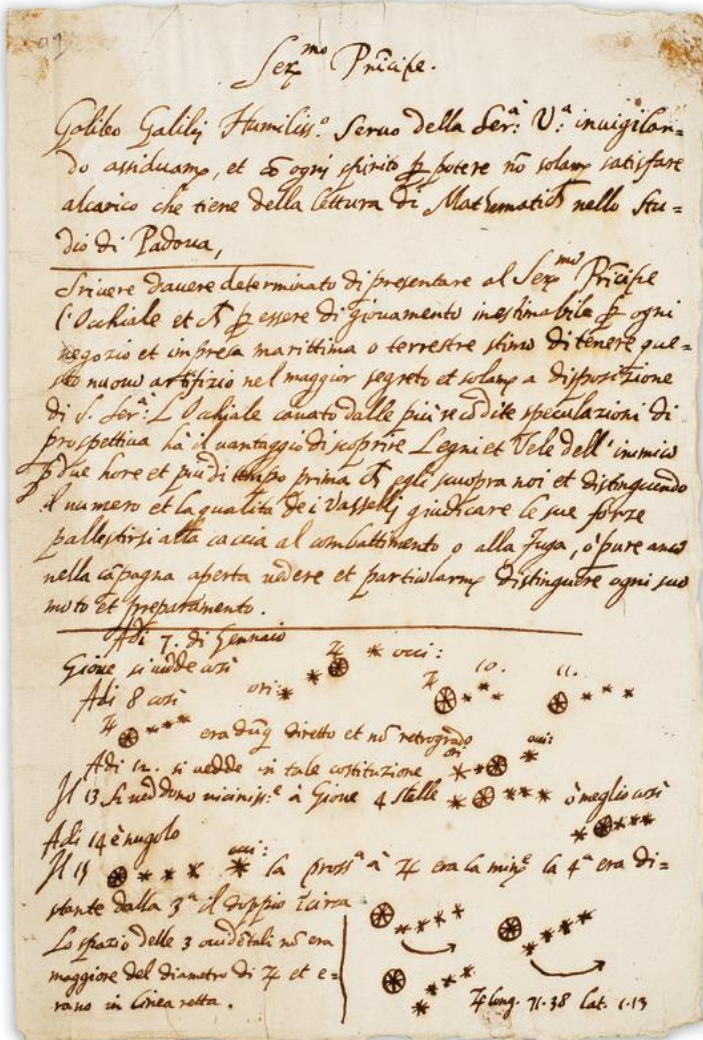 Ser.mo Prĩcipe.
Galileo Galilej Humiliss.o Servo della Ser:a V:a invigilan=
do assiduam.e, et cõ ogni spirito ꝑ potere nõ solam.e satisfare
alcarico che tiene della lettura di Mathematich.e nello Stu=
dio di Padova,
Scrivere d'avere determinato di presentare al Ser.mo Prĩcipe
l'Occhiale et ch.e ꝑ essere di giovamento inestimabile ꝑ ogni
negozio et impresa marittima o terrestre stimo di tenere que=
sto nuovo artifizio nel maggior segreto et solam.e a disposizione
di S. Ser:a L'Occhiale cavato dalle più recõdite speculazioni di
prospettiva hà il vantaggio di scoprire Legni et Vele dell'inimico
ꝑ due hore et più di tempo prima ch.e egli scuopra noi et distinguendo
il numero et la qualità dei Vasselli giudicare le sue forze
pallestirsi alla caccia al combattimento o alla fuga, ò pure anco
nella cãpagna aperta vedere et particolarm.e distinguere ogni suo
moto et preparamento.
Adi 7. di Gennaio
Gione si vedde così ♃ * occi:
Adi 8 così ori: * * 10. 11.
♃ *** era dũq diretto et nõ retrogrado
Adi 12. si vedde in tale costituzione ori * * occi: *
Il 13 si veddono viciniss:e à Giove 4 stelle * *** ò meglio così
Adi 14 è nugolo * ***
Il 15 * * * * occi: la pross.a à ♃ era la min.e la 4.a era di=
stante dalla 3.a il doppio ĩcirca
Lo spazio delle 3 occidẽtali nõ era
maggiore del diametro di ♃ et e=
rano in linea retta.
♃ long. 71.38 Lat. 1.13